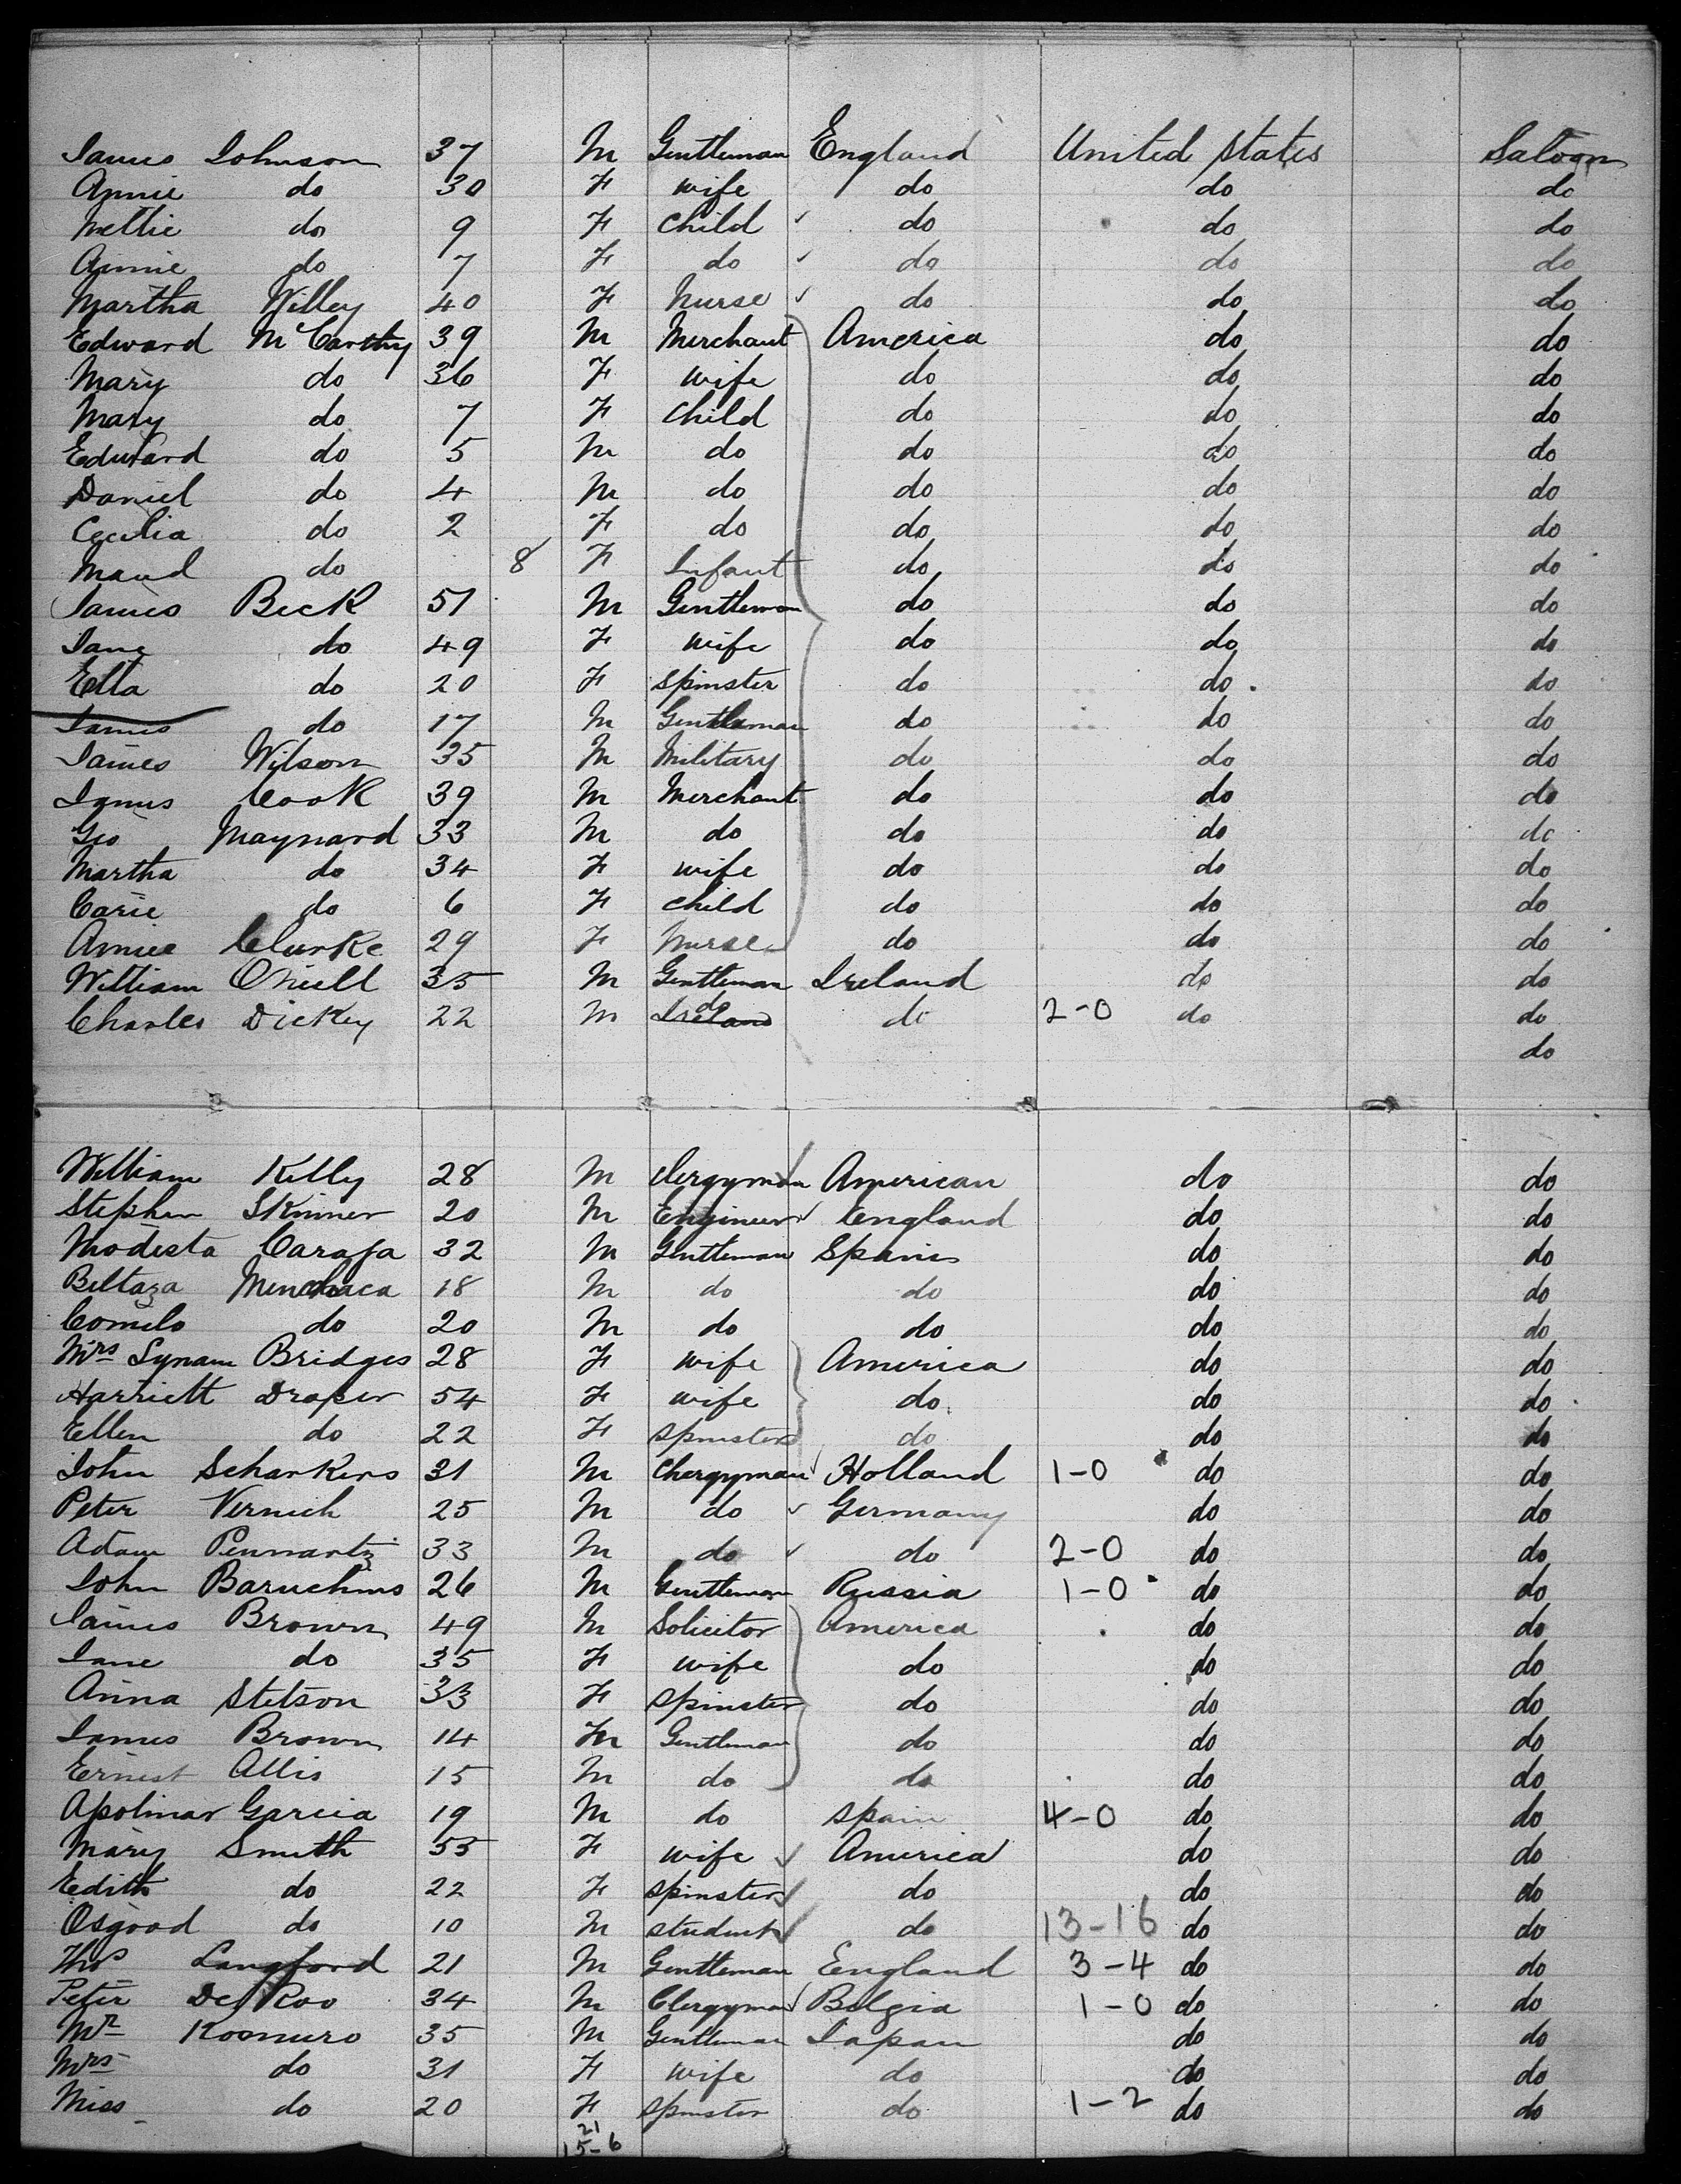 James Johnson 37 M Gentleman England United States Saloon
Annie do 30 F wife do do do
Nettie do 9 F Child do do do
Annie do 7 F do do do do
Martha Willey 40 F Nurse do do do
Edward McCarthy 39 M Merchant America do do
Mary do 36 F wife do do do
Mary do 7 F Child do do do
Edward do 5 M do do do do
Daniel do 4 M do do do do
Cecilia do 2 F do do do do
Maud do 8 F Infant do do do
James Beck 51 M Gentleman do do do
Jane do 49 F wife do do do
Etta do 20 F Spinster do do do
James do 17 M Gentleman do do do
James Wilson 35 M Military do do do
James Cook 39 M Merchant do do do
Geo Maynard 33 M do do do do
Martha do 34 F wife do do do
Carie do 6 F child do do do
Annie Clurke 29 F Nurse do do do
William Oneill 35 M Gentleman Ireland do do
Charles Dickey 22 M Ireland do do 2-0 do do
do
William Kelly 28 M Clergyman American do do
Stephen Skinner 20 M Engineer England do do
Modesta Carafa 32 M Gentleman Spanis do do
Beltaza Menchaca 18 M do do do do
Comilo do 20 M do do do do
Mrs Lynam Bridges 28 F wife America do do
Harriett Draper 54 F wife do do do
Ellen do 22 F Spinster do do do
John Scharkins 31 M Chergyman Holland 1-0 do do
Peter Vernich 25 M do Germany do do
Adam Pennartz 33 M do do 2-0 do do
John Baruchins 26 M Gentleman Russia 1-0 do do
James Brown 49 M Solicitor America do do
Jane do 35 F wife do do do
Anna Stetson 33 F Spinster do do do
James Brown 14 M Gentleman do do do
Ernest Allis 15 M do do do do
Apolinar Garcia 19 M do Spain 4-0 do do
Mary Smith 53 F wife America do do
Edith do 22 F Spinster do do do
Osgood do 10 M student do 13-16 do do
Thos Langford 21 M Gentleman England 3-4 do do
Peter De Roo 34 M Clergyman Belgia 1-0 do do
Mr Koomuro 35 M Gentleman Japan do do
Mrs do 31 F wife do do do
Miss do 20 F Spinster do 1-2 do do
21
15-6